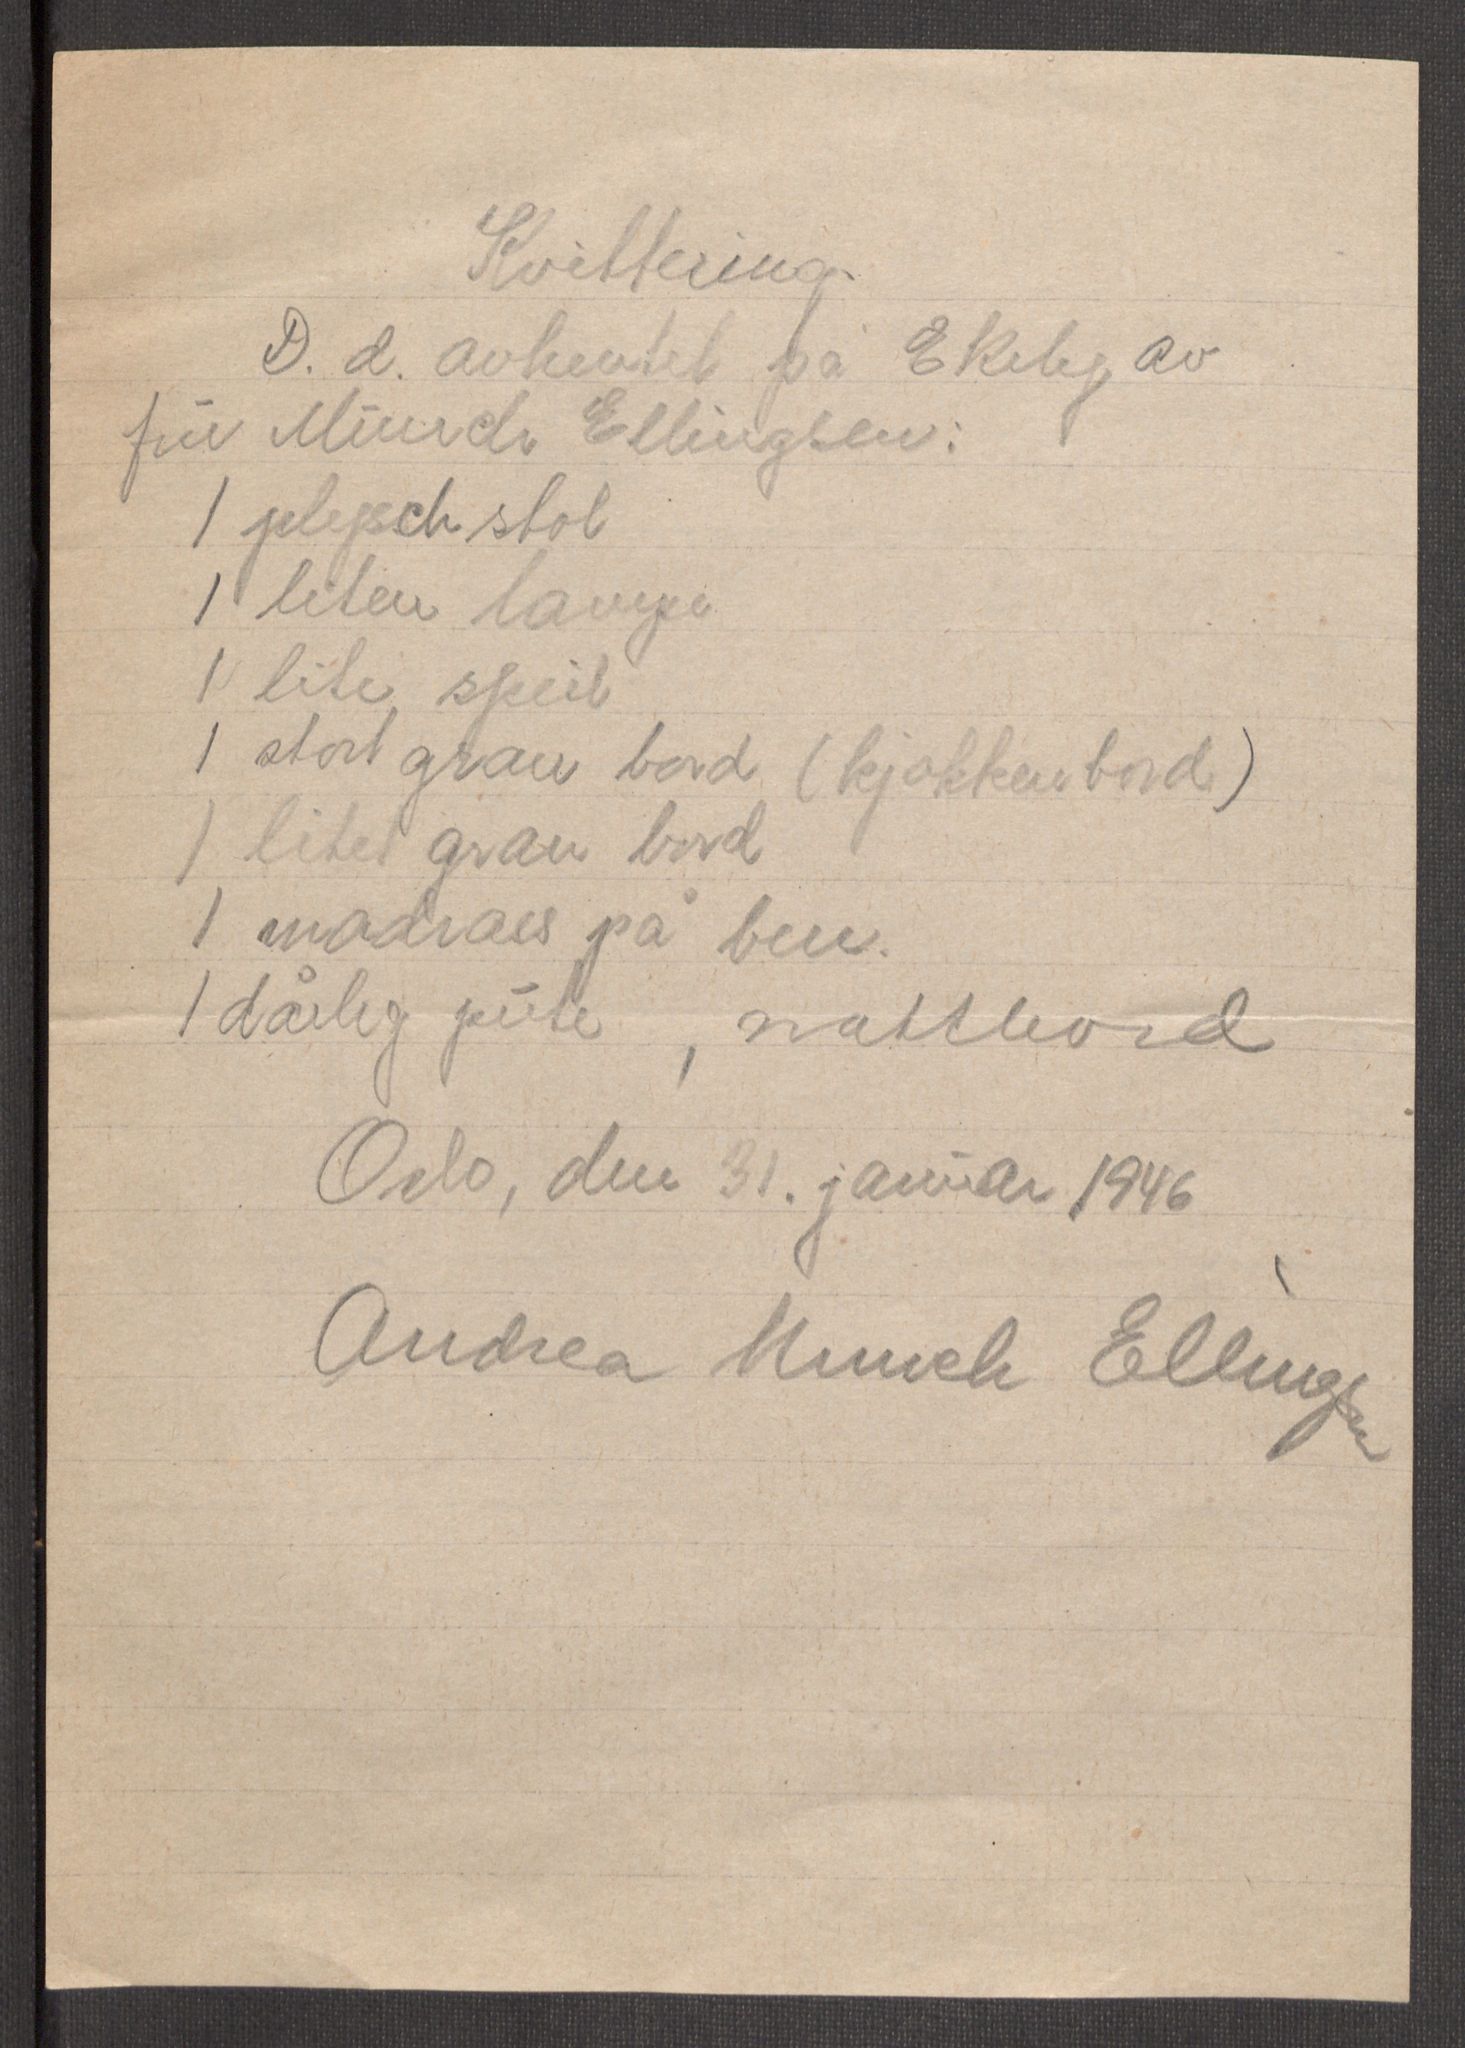 Kvittering.
D. d. avhentet på Ekebg av
frü Münch Ellingsen:
1 plysch stol
1 liten lampe
1 lite speil
1 stort gran bord (kjøkkenbord)
1 litet gran bord
1 madrass på ben.
1 dårlig püte, nattbord
Oslo, den 31. janüar 1946
Andrea Munch Ellingsen